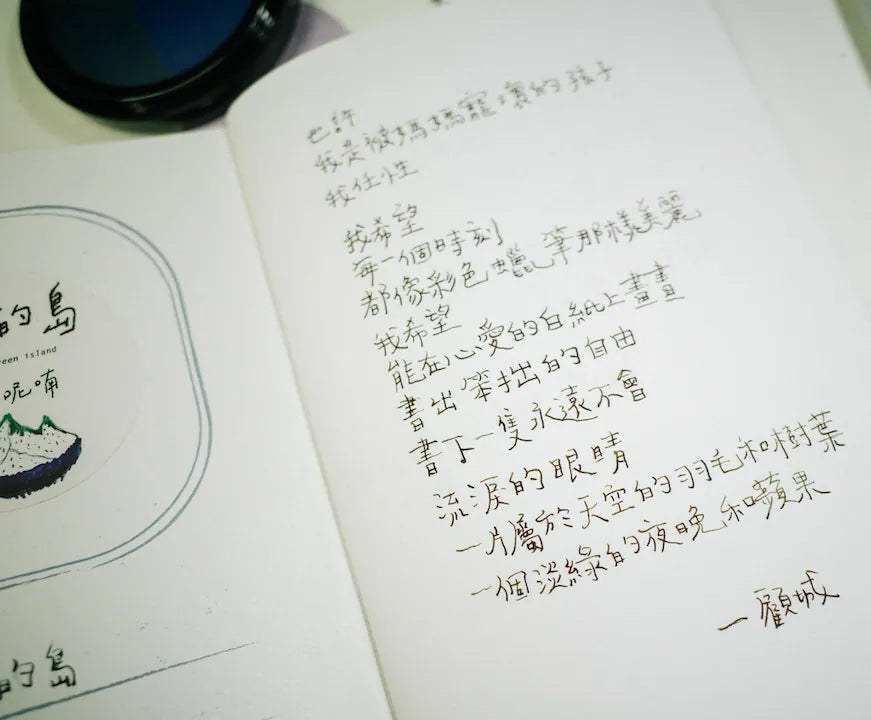 的島
reen island
呢喃
的島
也許
我是被媽媽寵壞的孩子
我任性
我希望
每一個時刻
都像彩色蠟筆那樣美麗
我希望
能在心愛的白紙上畫畫
畫出笨拙的自由
畫下一隻永遠不會
流淚的眼睛
一片屬於天空的羽毛和樹葉
一個淡綠的夜晚和蘋果
—顧城